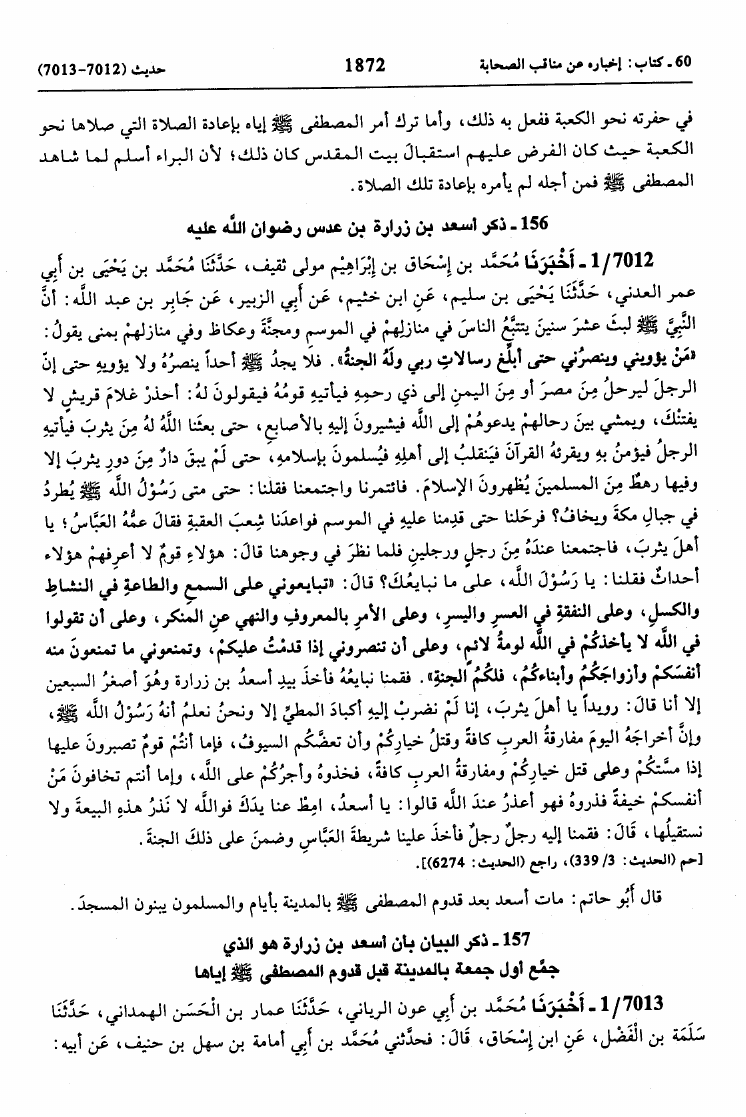 60 ـ كتاب: إخباره عن مناقب الصحابة 1872 حديث (7012-7013)
في حفرته نحو الكعبة ففعل به ذلك، وأما ترك أمر المصطفى ﷺ إياه بإعادة الصلاة التي صلاها نحو
الكعبة حيث كان الفرض عليهم استقبالَ بيت المقدس كان ذلك؛ لأن البراء أسلم لما شاهد
المصطفى ﷺ فمن أجله لم يأمره بإعادة تلك الصلاة.
156 ـ ذكر أسعد بن زرارة بن عدس رضوان اللَّه عليه
1/7012 ـ أَخْبَرَنَا مُحَمَّد بن إسْحَاق بن إبْرَاهِيْم مولى ثقيف، حَدَّثَنَا مُحَمَّد بن يَحْيَى بن أبي
عمر العدني، حَدَّثَنَا يَحْيَى بن سليم، عَنِ ابن خثيم، عَن أبي الزبير، عَن جَابِر بن عبد اللَّه: أنَّ
النَّبِيَّ ﷺ لبثَ عشرَ سنينَ يتتبَّعُ الناسَ في منازلِهمْ في الموسمِ ومجنَّةَ وعكاظ وفي منازلهمْ بمنى يقولُ:
«مَنْ يؤويني وينصرُني حتى أبلِّغ رسالاتِ ربي ولَهُ الجنةُ». فلا يجدُ ﷺ أحداً ينصرُهُ ولا يؤويهِ حتى إنّ
الرجلَ ليرحلُ مِنَ مصرَ أو مِنَ اليمنِ إلى ذي رحمِهِ فيأتيهِ قومُهُ فيقولونَ لهُ: أحذرْ غلامَ قريشٍ لا
يفتنْكَ، ويمشي بينَ رحالهمْ يدعوهُمْ إلى اللَّه فيشيرونَ إليهِ بالأصابعِ، حتى بعثَنا اللَّهُ لهُ مِنَ يثربَ فيأتيهِ
الرجلُ فيؤمنُ بهِ ويقرئُهُ القرآنَ فيَنقلبُ إلى أهلِهِ فيُسلمونَ بإسلامهِ، حتى لَمْ يبقَ دارٌ مِنَ دورِ يثربَ إلا
وفيها رهطٌ مِنَ المسلمينَ يُظهرونَ الإسلامَ. فائتمرنا واجتمعنا فقلنا: حتى متى رَسُوْلُ اللَّه ﷺ يُطردُ
في جبالِ مكةَ ويخافُ؟ فرحَلنا حتى قدِمنا عليهِ في الموسم فواعدَنا شِعبَ العقبةِ فقالَ عمُّهُ العَبَّاسُ؛ يا
أهلَ يثربَ، فاجتمعنا عندَهُ مِنَ رجلٍ ورجلينِ فلما نظرَ في وجوهنا قالَ: هؤلاءِ قومٌ لا أعرفهمْ هؤلاء
أحداثٌ فقلنا: يا رَسُوْلَ اللَّه، على ما نبايعُكَ؟ قالَ: «تبايعوني على السمعِ والطاعةِ في النشاطِ
والكسلِ، وعلى النفقةِ في العسرِ واليسرِ، وعلى الأمرِ بالمعروفِ والنهي عنِ المنكرِ، وعلى أن تقولوا
في اللَّه لا يأخذكُمْ في اللَّه لومةُ لائمٍ، وعلى أن تنصروني إذا قدمْتُ عليكمْ، وتمنعوني ما تمنعونَ منه
أنفسَكمْ وأزواجَكُمْ وأبناءكُمْ، فلكُمُ الجنةِ». فقمنا نبايعُهُ فأخذَ بيدِ أسعدُ بن زرارة وهُوَ أصغرُ السبعين
إلا أنا قالَ: رويداً يا أهلَ يثربَ، إنا لَمْ نضربْ إليهِ أكبادَ المطيِّ إلا ونحنُ نعلمُ أنهُ رَسُوْلُ اللَّه ﷺ،
وإنَّ أخراجَهُ اليومَ مفارقةُ العربِ كافةً وقتلُ خيارِكُمْ وأن تعضَّكم السيوفُ، فإما أنتُمْ قومٌ تصبرونَ عليها
إذا مسَّتكُمْ وعلى قتل خيارِكُمْ ومفارقةُ العربِ كافةً، فخذوهُ وأجرُكُمْ على اللَّه، وإما أنتم تخافونَ مَنْ
أنفسكمْ خيفةً فذروهُ فهو أعذرُ عندَ اللَّه قالوا: يا أسعدُ، امِطْ عنا يدَكَ فواللَّهِ لا نَذرُ هذهِ البيعةَ ولا
نستقيلُها، قَالَ: فقمنا إليه رجلٌ رجلٌ فأخذَ علينا شريطةَ العَبَّاسِ وضمنَ على ذلكَ الجنةَ.
[حم (الحديث: 3/ 339)، راجع (الحديث: 6274)].
قال أَبُو حاتم: مات أسعد بعد قدوم المصطفى ﷺ بالمدينة بأيام والمسلمون يبنون المسجدَ.
157 ـ ذكر البيان بأن أسعد بن زرارة هو الذي
جمَّع أول جمعة بالمدينة قبل قدوم المصطفى ﷺ إياها
1/7013 ـ أَخْبَرَنَا مُحَمَّد بن أبي عون الرياني، حَدَّثَنَا عمار بن الْحَسَن الهمداني، حَدَّثَنَا
سَلَمَة بن الْفَضْل، عَنِ ابن إسْحَاق، قَالَ: فحدَّثني مُحَمَّد بن أبي أمامة بن سهل بن حنيف، عَن أبيه: